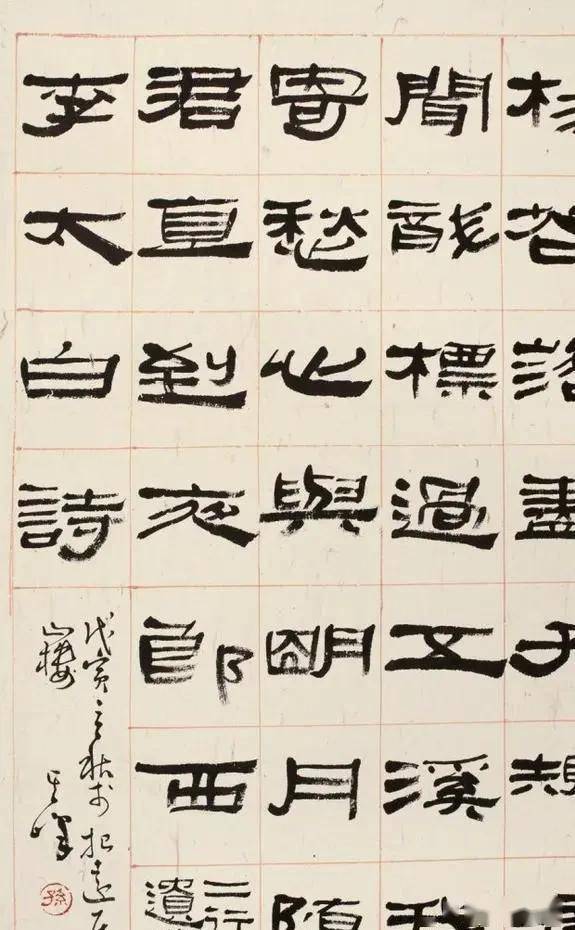 楊花落盡子規
聞龍標過五溪我
寄愁心與明月隨
君直到夜郎西二行
遺
李太白詩
戊寅之秋於
山樓其峰
孫